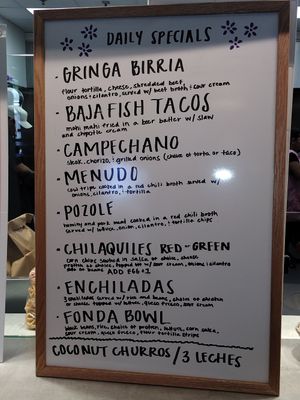 DAILY SPECIALS
· GRINGA BIRRIA
flour tortilla, cheese, shredded beef,
onions + cilantro, served w/ beef broth + sour cream
· BAJA FISH TACOS
mahi mahi fried in a beer batter w/ slaw
and chipotle cream
· CAMPECHANO
steak, chorizo, + grilled onions (choice of torta or taco)
· MENUDO
cow tripe cooked in a red chili broth served w/
onions, cilantro, + tortilla
· POZOLE
hominy and pork meat cooked in a red chili broth
served w/ lettuce, onion, cilantro, + tortilla chips
· CHILAQUILES RED or GREEN
corn chips in salsa of choice, cheese
protein of choice, topped w/ sour cream, onions, cilantro
side of beans ADD EGG +1
· ENCHILADAS
3 enchiladas served w/ rice and beans, choice of protein
or cheese, topped w/ lettuce, queso fresco, sour cream
· FONDA BOWL
black beans, rice, choice of protein, lettuce, corn salsa,
sour cream, queso fresco, flour tortilla strips
COCONUT CHURROS / 3 LECHES